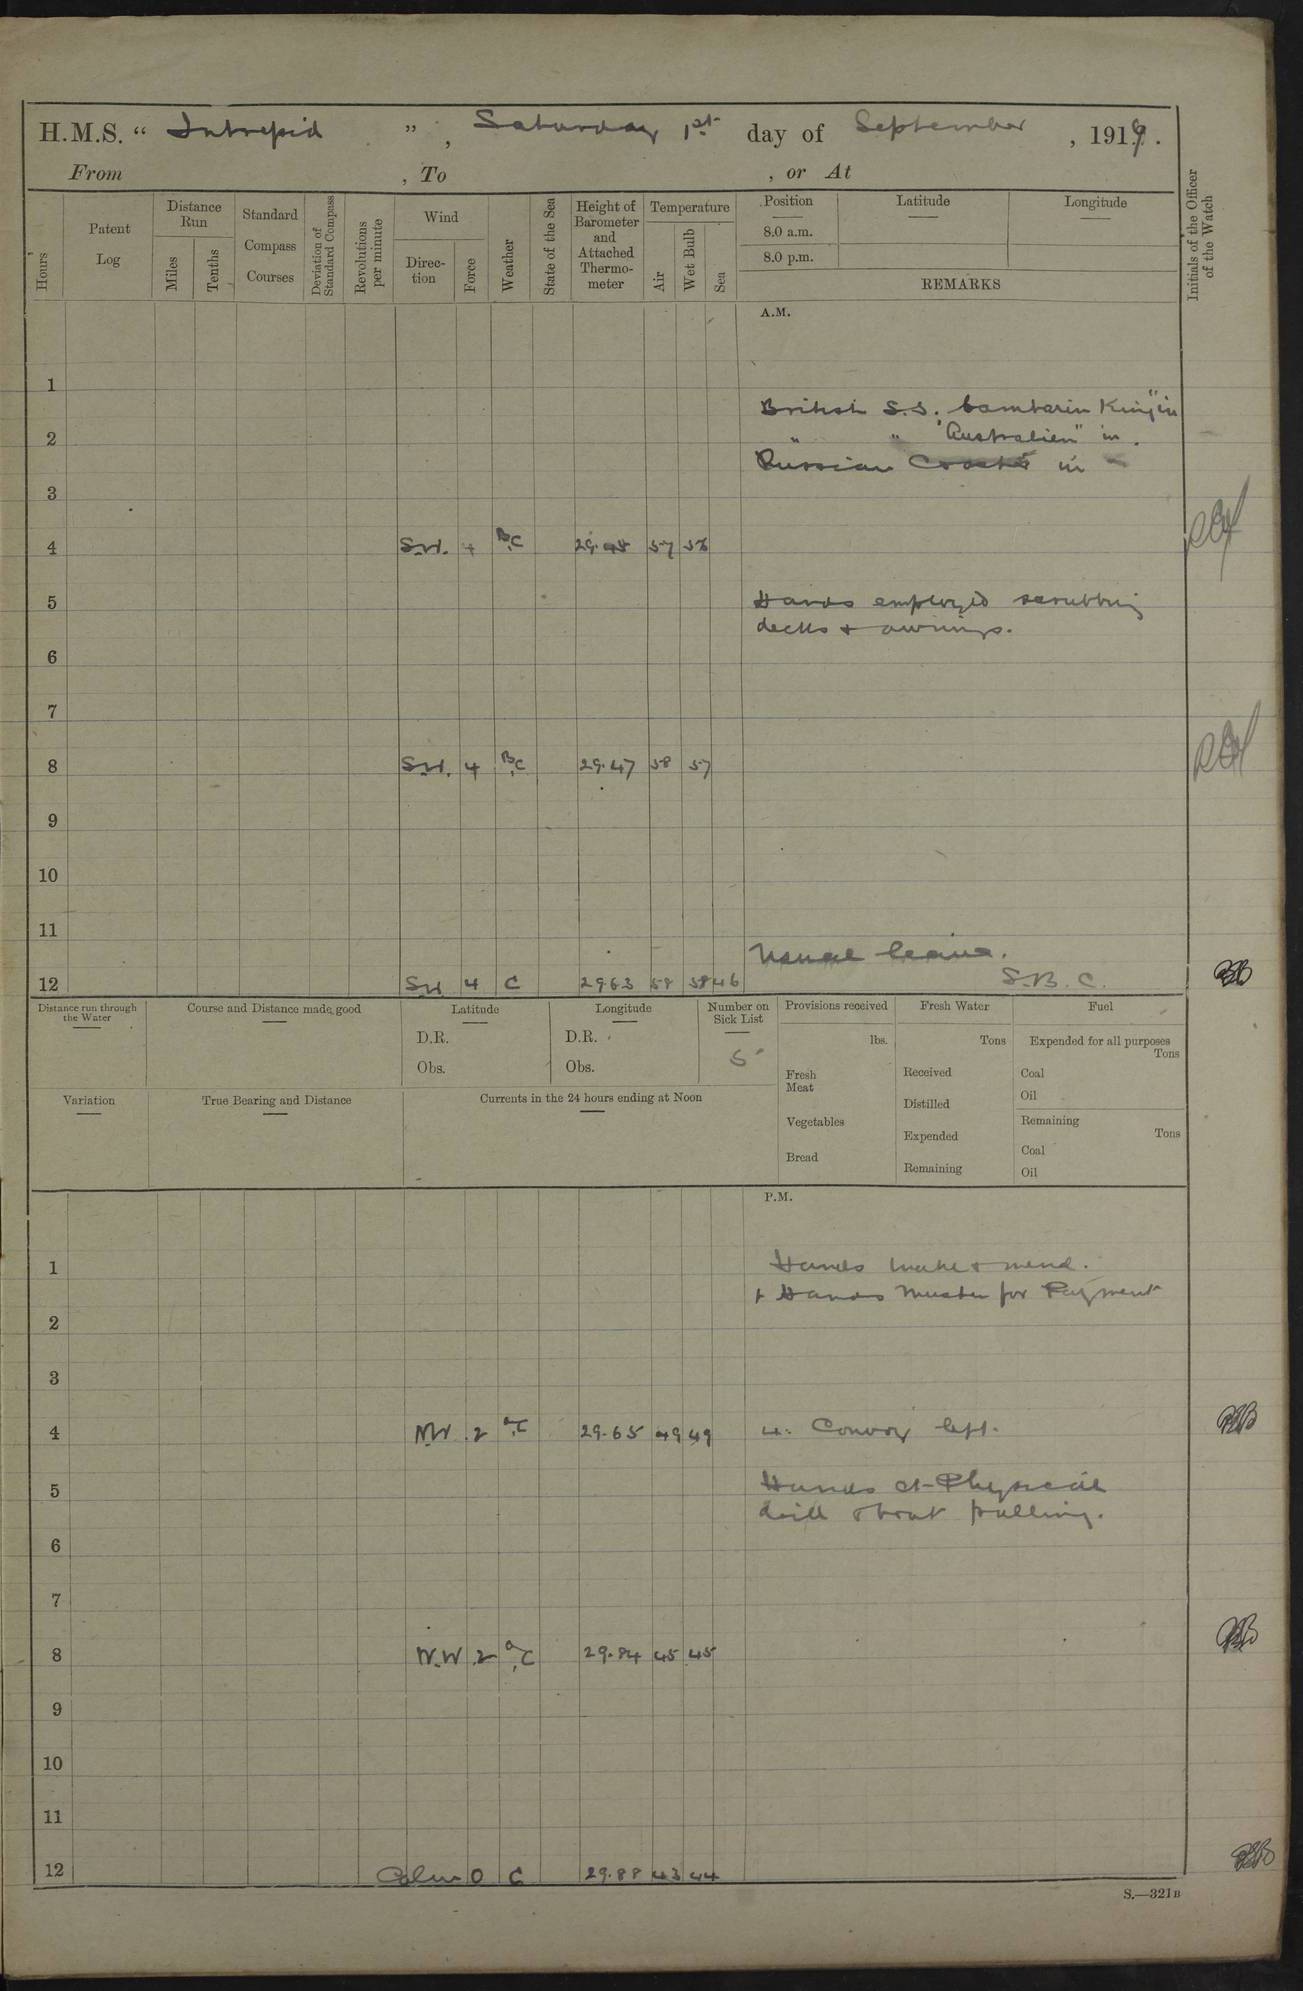 H.M.S. “ Intrepid ” , Saturday 1st day of September , 191 .
From , To , or At
Hours
Patent Log
Distance Run
Miles
Tenths
Standard Compass Courses
Deviation of Standard Compass
Revolutions per minute
Wind
Direction
Force
Weather
State of the Sea
Height of Barometer and Attached Thermometer
Temperature
Air
Wet Bulb
Sea
Position
8.0 a.m.
8.0 p.m.
Latitude
Longitude
REMARKS
Initials of the Officer of the Watch
A.M.
1
British S.S. King" in
2 " " "Australien" in .
Russian in
3
4 S.W. 4 B.C 29.48 57 56
5 Hands employed scrubbing
decks & awnings.
6
7
8 S.W. 4 B.C 29.47 58 57
9
10
11
Usual leave.
12 SW 4 C 29 63 58 58 46 S.B.C.
Distance run through the Water
Course and Distance made good
Latitude
D.R.
Obs.
Longitude
D.R.
Obs.
Number on Sick List
5
Provisions received
lbs.
Fresh Meat
Vegetables
Bread
Fresh Water
Tons
Received
Distilled
Expended
Remaining
Fuel
Expended for all purposes
Tons
Coal
Oil
Remaining
Tons
Coal
Oil
Variation
True Bearing and Distance
Currents in the 24 hours ending at Noon
P.M.
1 Hands make & mend.
+ Hands muster for Payment
2
3
4 N.W 2 C 29.65 49 49 4. Convoy left.
5 Hands at Physical
drill & boat pulling.
6
7
8 N.W 2 C 29.84 45 45
9
10
11
12 Calm 0 C 29.88 43 44
S.—321B